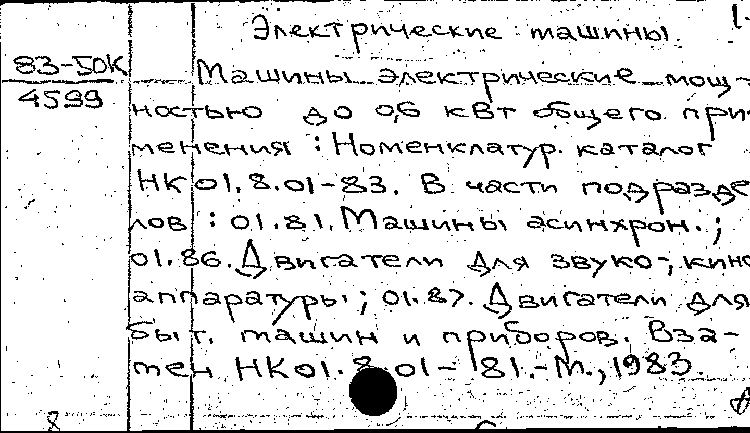 Электрические машины.
1.
83-50К
4599
Машины электрические мощ-
ностью до 0,6 кВт общего при-
менения : Номенклатур. каталог
НК 01.8.01-83. В части подразде
лов : 01.81. Машины асинхрон. ;
01.86. Двигатели для звуко-, кино
аппаратуры ; 01.87. Двигатели для
быт. машин и приборов. Вза-
мен НК 01.8.01-81.-М., 1983.
8